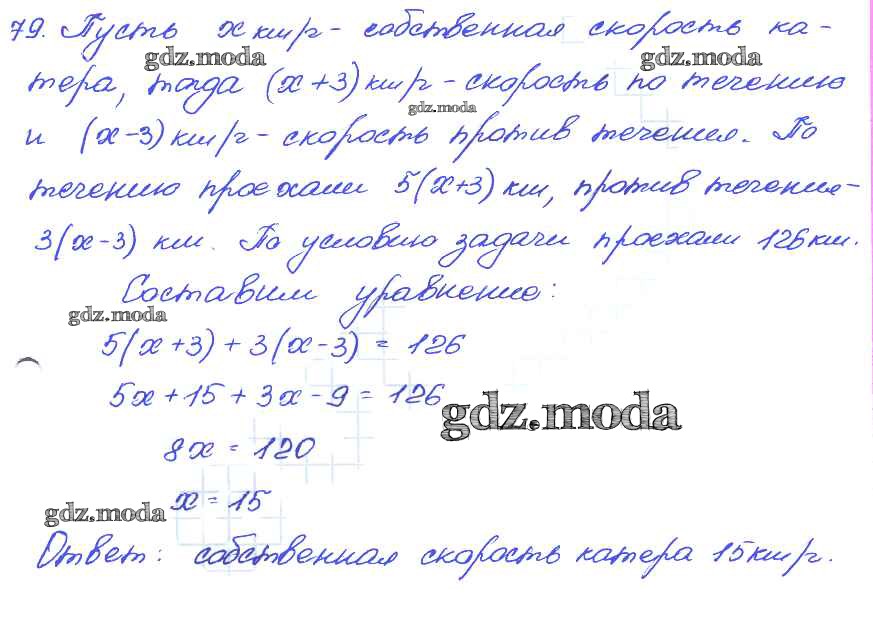 79. Пусть x км/г - собственная скорость ка-
gdz.moda
тера, тогда (x+3) км/г - скорость по течению
gdz.moda
и (x-3) км/г - скорость против течения. По
течению проехали 5(x+3) км, против течения-
3(x-3) км. По условию задачи проехали 126км.
Составим уравнение:
gdz.moda
5(x+3) + 3(x-3) = 126
5x + 15 + 3x - 9 = 126
gdz.moda
8x = 120
x = 15
gdz.moda
Ответ: собственная скорость катера 15км/г.